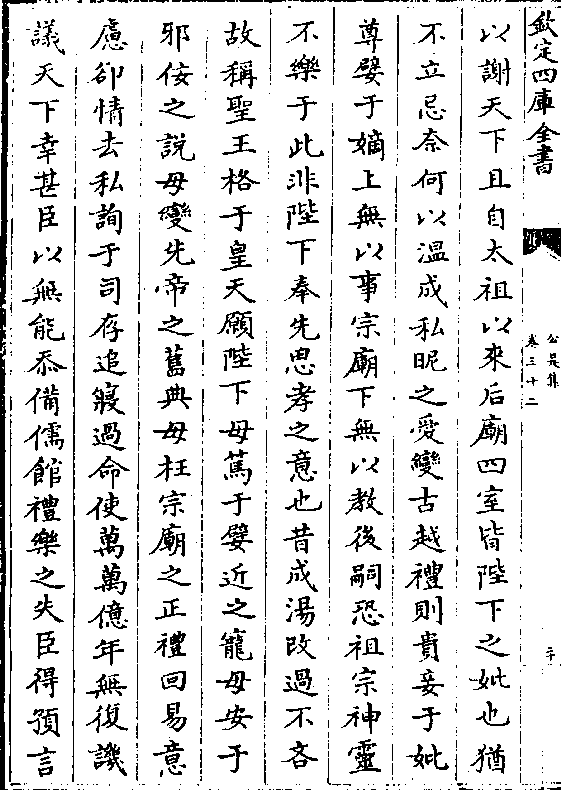 欽定四庫全書
公是集
卷三十二
二十
以謝天下且自太祖以來后廟四室皆陛下之妣也猶
不立忌奈何以溫成私昵之愛變古越禮則貴妾于妣
尊嬖于嫡上無以事宗廟下無以教後嗣恐祖宗神靈
不樂于此非陛下奉先思孝之意也昔成湯改過不吝
故稱聖王格于皇天願陛下毋篤于嬖近之寵毋安于
邪佞之說毋變先帝之舊典毋枉宗廟之正禮回易意
慮卻情去私詢于司存追寢過命使萬萬億年無復譏
議天下幸甚臣以無能忝備儒館禮樂之失臣得預言